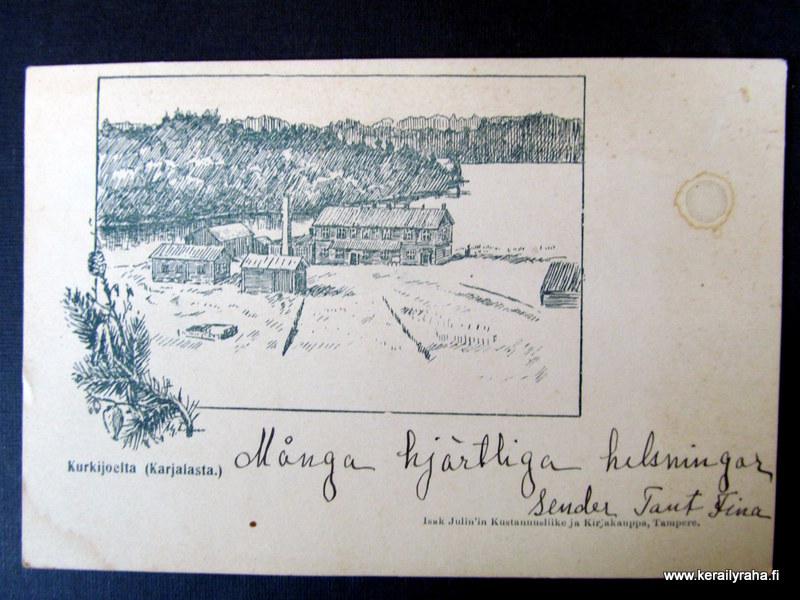 Kurkijoelta (Karjalasta.)
Många hjärtliga helsningar
sender Tant Fina
Isak Julin'in Kustannusliike ja Kirjakauppa, Tampere.
www.kerailyraha.fi